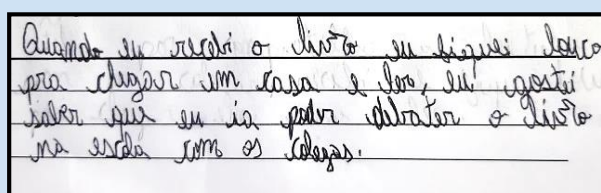 Quando eu recebi o livro eu fiquei louco
pra chegar em casa e ler, eu gostei
saber que eu ia poder debater o livro
na escola com os colegas.